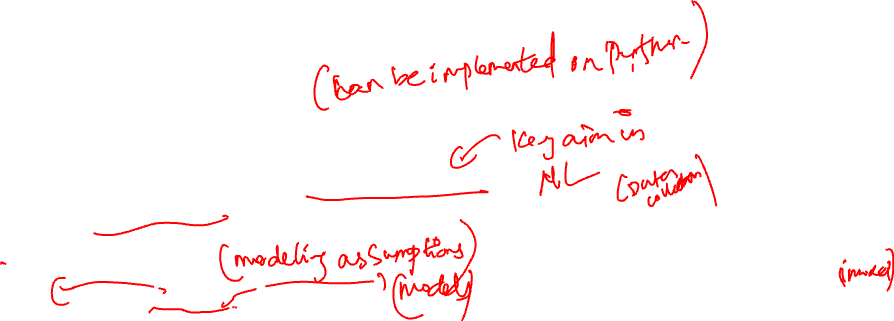 (can be implemented in Python)
Key aim in
ML (Data collection)
(modeling assumptions)
(models)
(model)